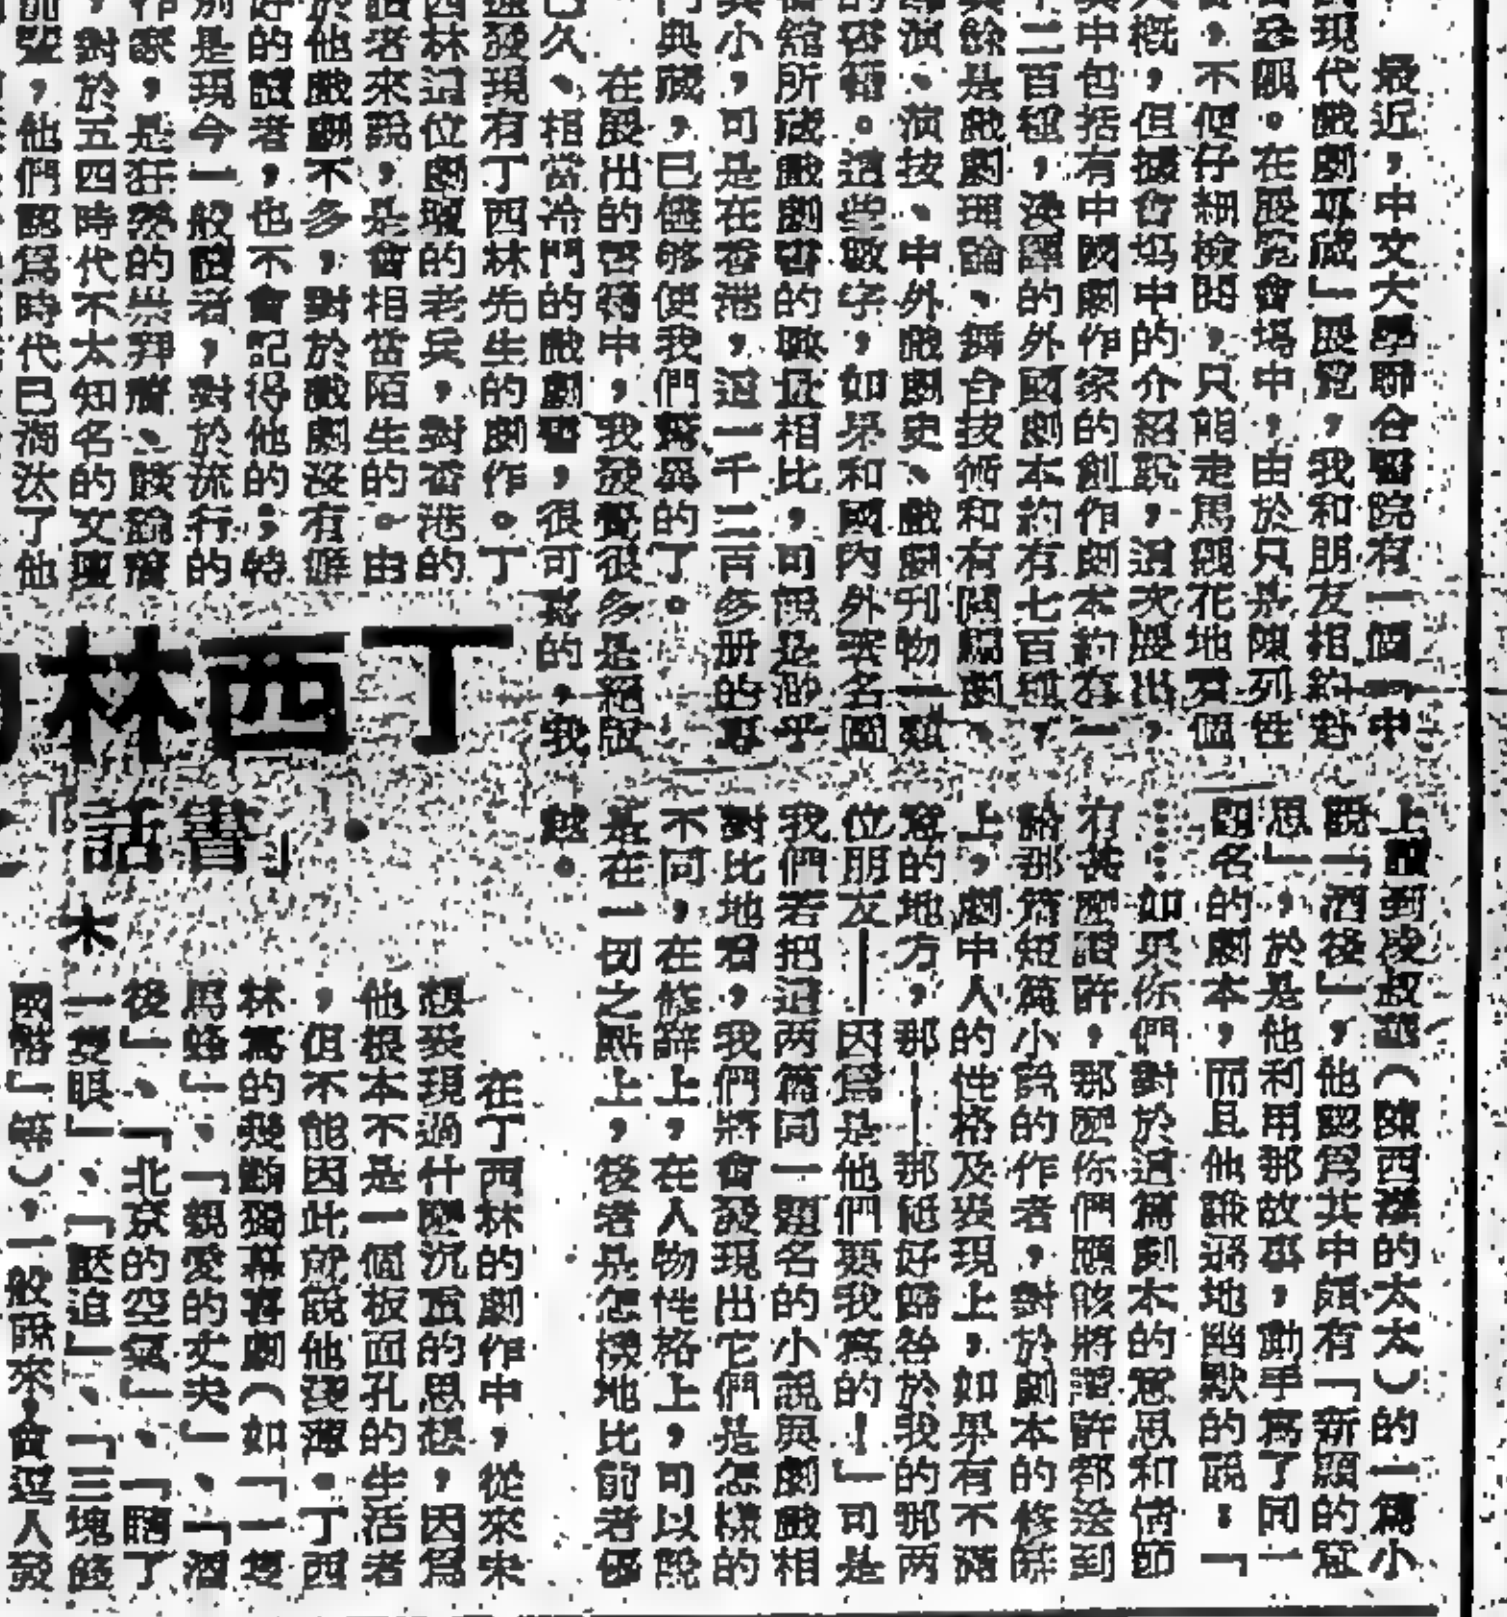 最近，中文大學聯合書院有一個「中
現代戲劇專藏」展覽，我和朋友相約赴
參觀。在展覽會場中，由於只是陳列性
，不便仔細檢閱，只能走馬觀花地看個
大概，但據會場中的介紹說，這次展出，
其中包括有中國劇作家的創作劇本約有一
千二百種，決譯的外國劇本約有七百種，
其餘是戲劇理論、舞台技術和有關戲劇
導演、演技、中外戲劇史、戲劇刊物一類
的書籍。這些數字，如果和國內外著名圖
書館所藏戲劇書的數量相比，可說是渺乎
其小，可是在香港，這一千二百多册的專
門典藏，已儘够使我們驚異的了。
在展出的書籍中，我發覺很多是絕版
已久、相當冷門的戲劇書，很可喜的，我
還發現有丁西林先生的劇作。丁
西林這位劇壇的老兵，對香港的
讀者來說，是會相當陌生的。由
於他戲劇不多，對於戲劇沒有癖
好的讀者，也不會記得他的；特
別是現今一般讀者，對於流行的
作家，是狂熱的崇拜
，對於五四時代不太知名的文壇
前輩，他們認爲時代已淘汰了他
丁西林
「書話」
木
上讀到凌叔華（陳西瀅的太太）的一篇小
說「酒後」，他認爲其中頗有「新穎的意
思」，於是他利用那故事，動手寫了同一
題名的劇本，而且他謙遜地幽默的說：「
……如果你們對於這篇劇本的意思和情節
有甚麼讚許，那麼你們應該將讚許都送到
給那篇短篇小說的作者，對於劇本的修辭
上，劇中人的性格及表現上，如果有不滿
意的地方，那——那祗好歸咎於我的那两
位朋友——因爲是他們要我寫的！」可是
我們若把這两篇同一題名的小說與戲劇相
對比地看，我們將會發現出它們是怎樣的
不同，在修辭上，在人物性格上，可以說
是在一切之點上，後者是怎樣地比前者優
越。
在丁西林的劇作中，從來未
想表現過什麼沉重的思想，因爲
他根本不是一個板面孔的生活者
，但不能因此就說他淺薄。丁西
林寫的幾齣獨幕喜劇（如「一隻
馬蜂」、「親愛的丈夫」、「酒
後」、「北京的空氣」、「瞎了
一隻眼」、「壓迫」、「三塊錢
國幣」等），一般說來，會逗人發